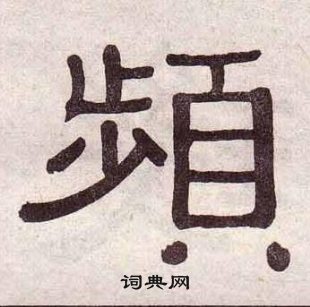 頻
词典网